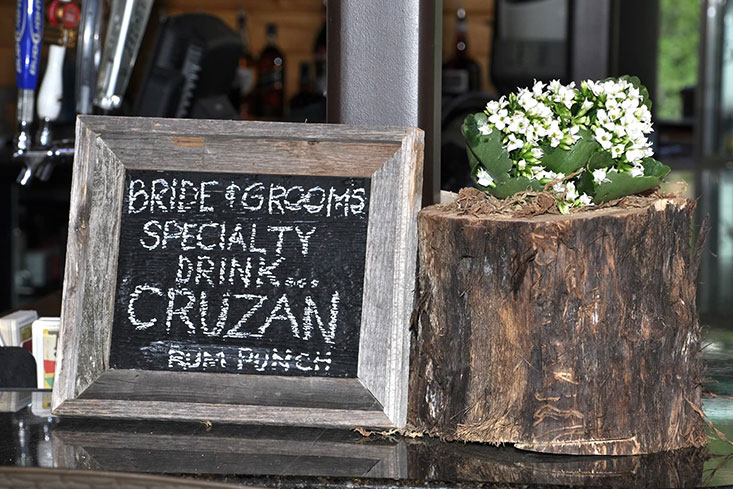 BRIDE & GROOMS
SPECIALTY
DRINK...
CRUZAN
RUM PUNCH